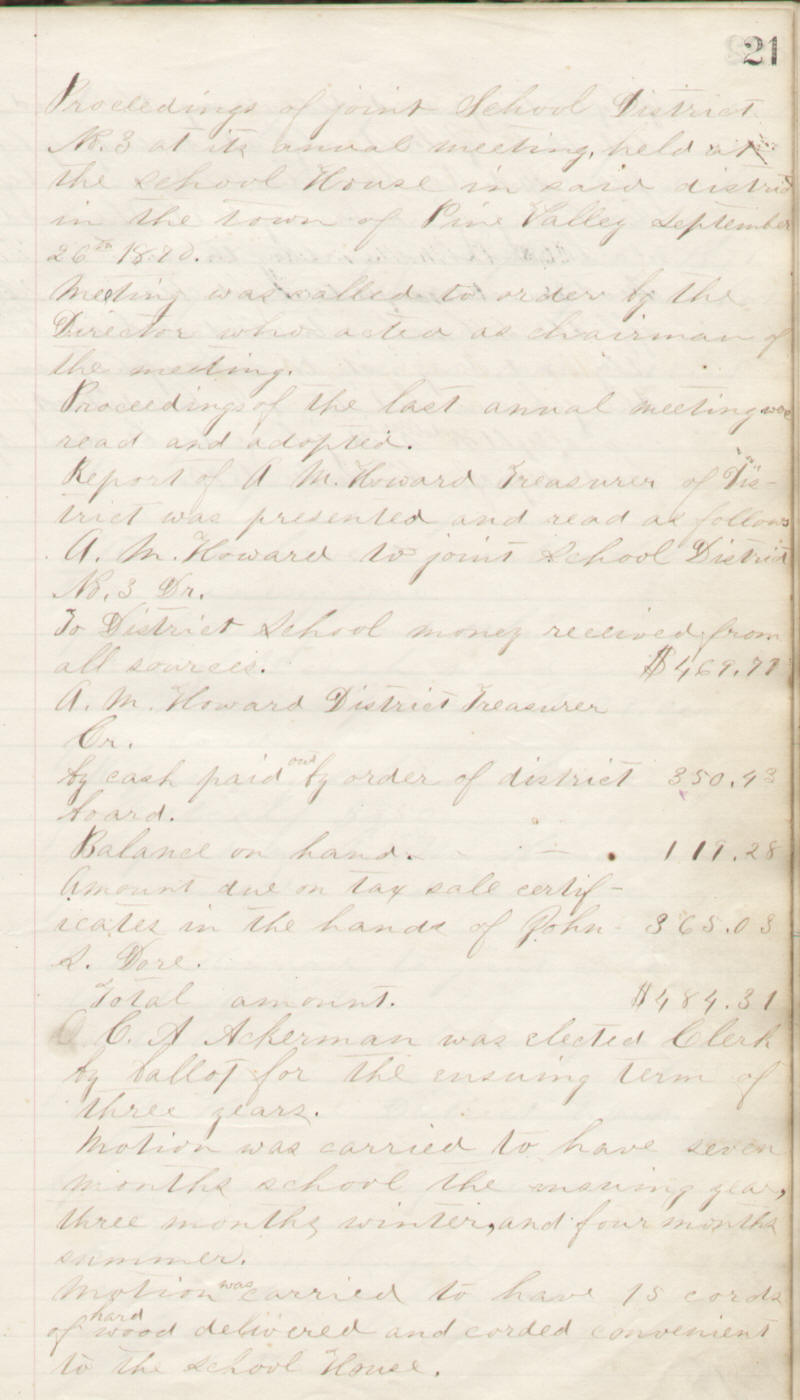 21
Proceedings of joint School District
No. 3 at its anual meeting, held at
the school House in said district
in the town of Pine Valley September
26th 1870.
Meeting was called to order by the
Director who acted as chairman of
the meeting.
Proceedings of the last anual meeting were
read and adopted.
Report of A M. Howard Treasurer of Dis-
trict was presented and read as follows
A. M. Howard to joint School District
No. 3 Dr.
To District School money received from
all sources. $469.71
A. M. Howard District Treasurer
Cr.
by cash paid out by order of district 350.43
board.
Balance on hand. 119.28
Amount due on tax sale certif-
icates in the hands of John 365.03
S. Dore.
Total amount. $484.31
C. A Ackerman was elected Clerk
by ballot for the ensuing term of
three years.
Motion was carried to have seven
months school the ensuing year,
three months winter, and four months
summer.
Motion was carried to have 15 cords
of hard wood delivered and corded convenient
to the school House.